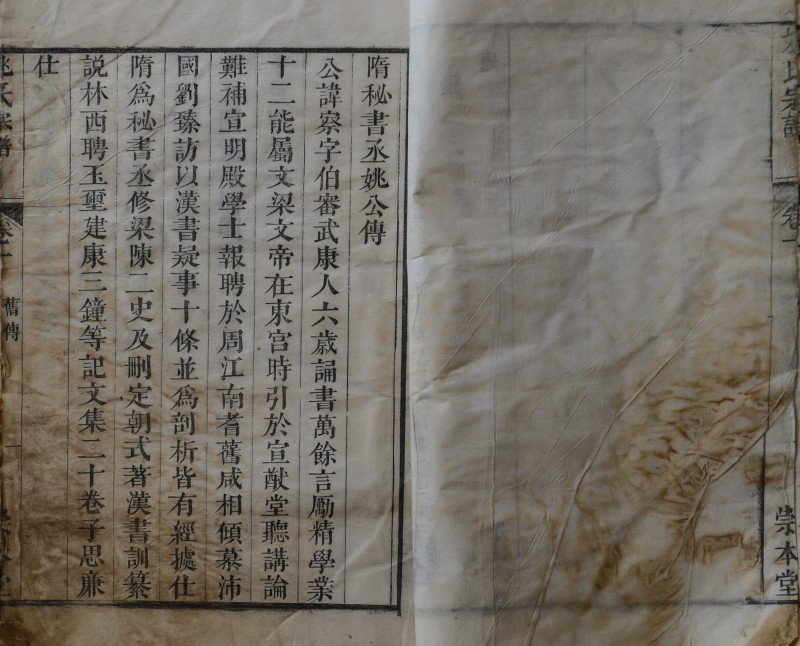 隋秘書丞姚公傳
公諱察字伯審武康人六歲誦書萬餘言勵精學業
十二能屬文梁文帝在東宮時引於宣猷堂聽講論
難補宣明殿學士報聘於周江南耆舊咸相傾慕沛
國劉臻訪以漢書疑事十條並爲剖析皆有經據仕
隋爲秘書丞修梁陳二史及刪定朝式著漢書訓纂
說林西聘玉璽建康三鐘等記文集二十卷子思廉
仕
姚氏宗譜
卷一
舊傳
一
崇本堂